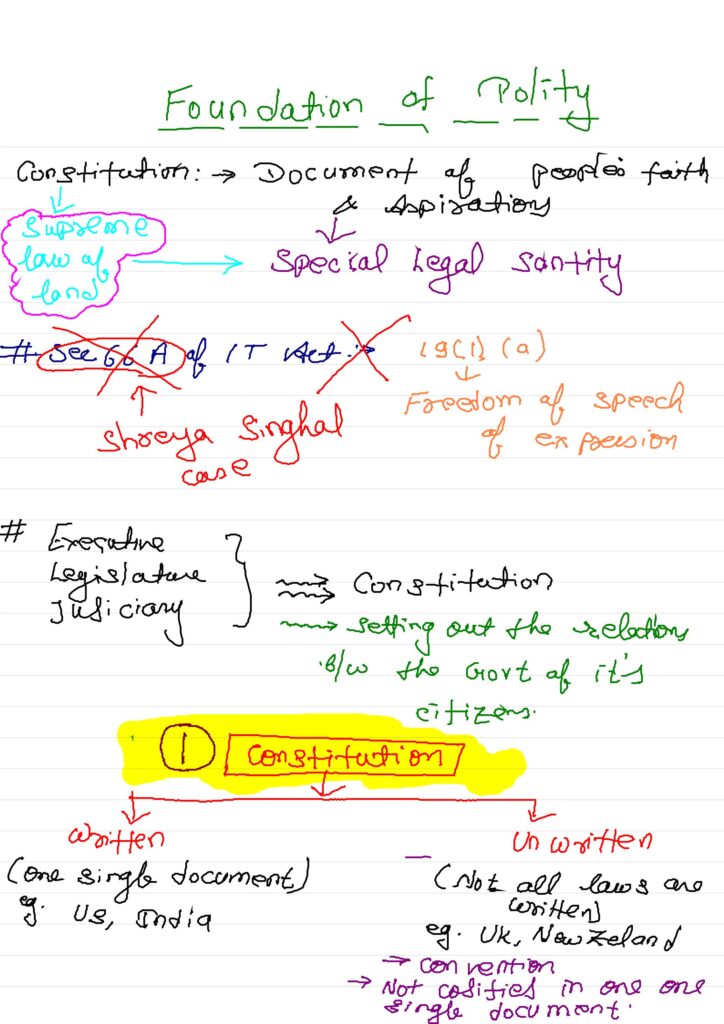 Foundation of Polity
Constitution: → Document of people's faith
& Aspirations
Supreme
law of
land
→ Special Legal Santity
# Sec 66 A of IT Act :→ 19(1) (a)
Freedom of speech
of expression
Shreya Singhal
case
# Executive
Legislature
Judiciary
Constitution
setting out the relations
B/w the Govt of it's
citizens.
1 Constitution
Written
(one single document)
eg. US, India
Unwritten
(Not all laws are
written)
eg. UK, New Zeland
→ convention
→ Not cosifies in one one
single document.